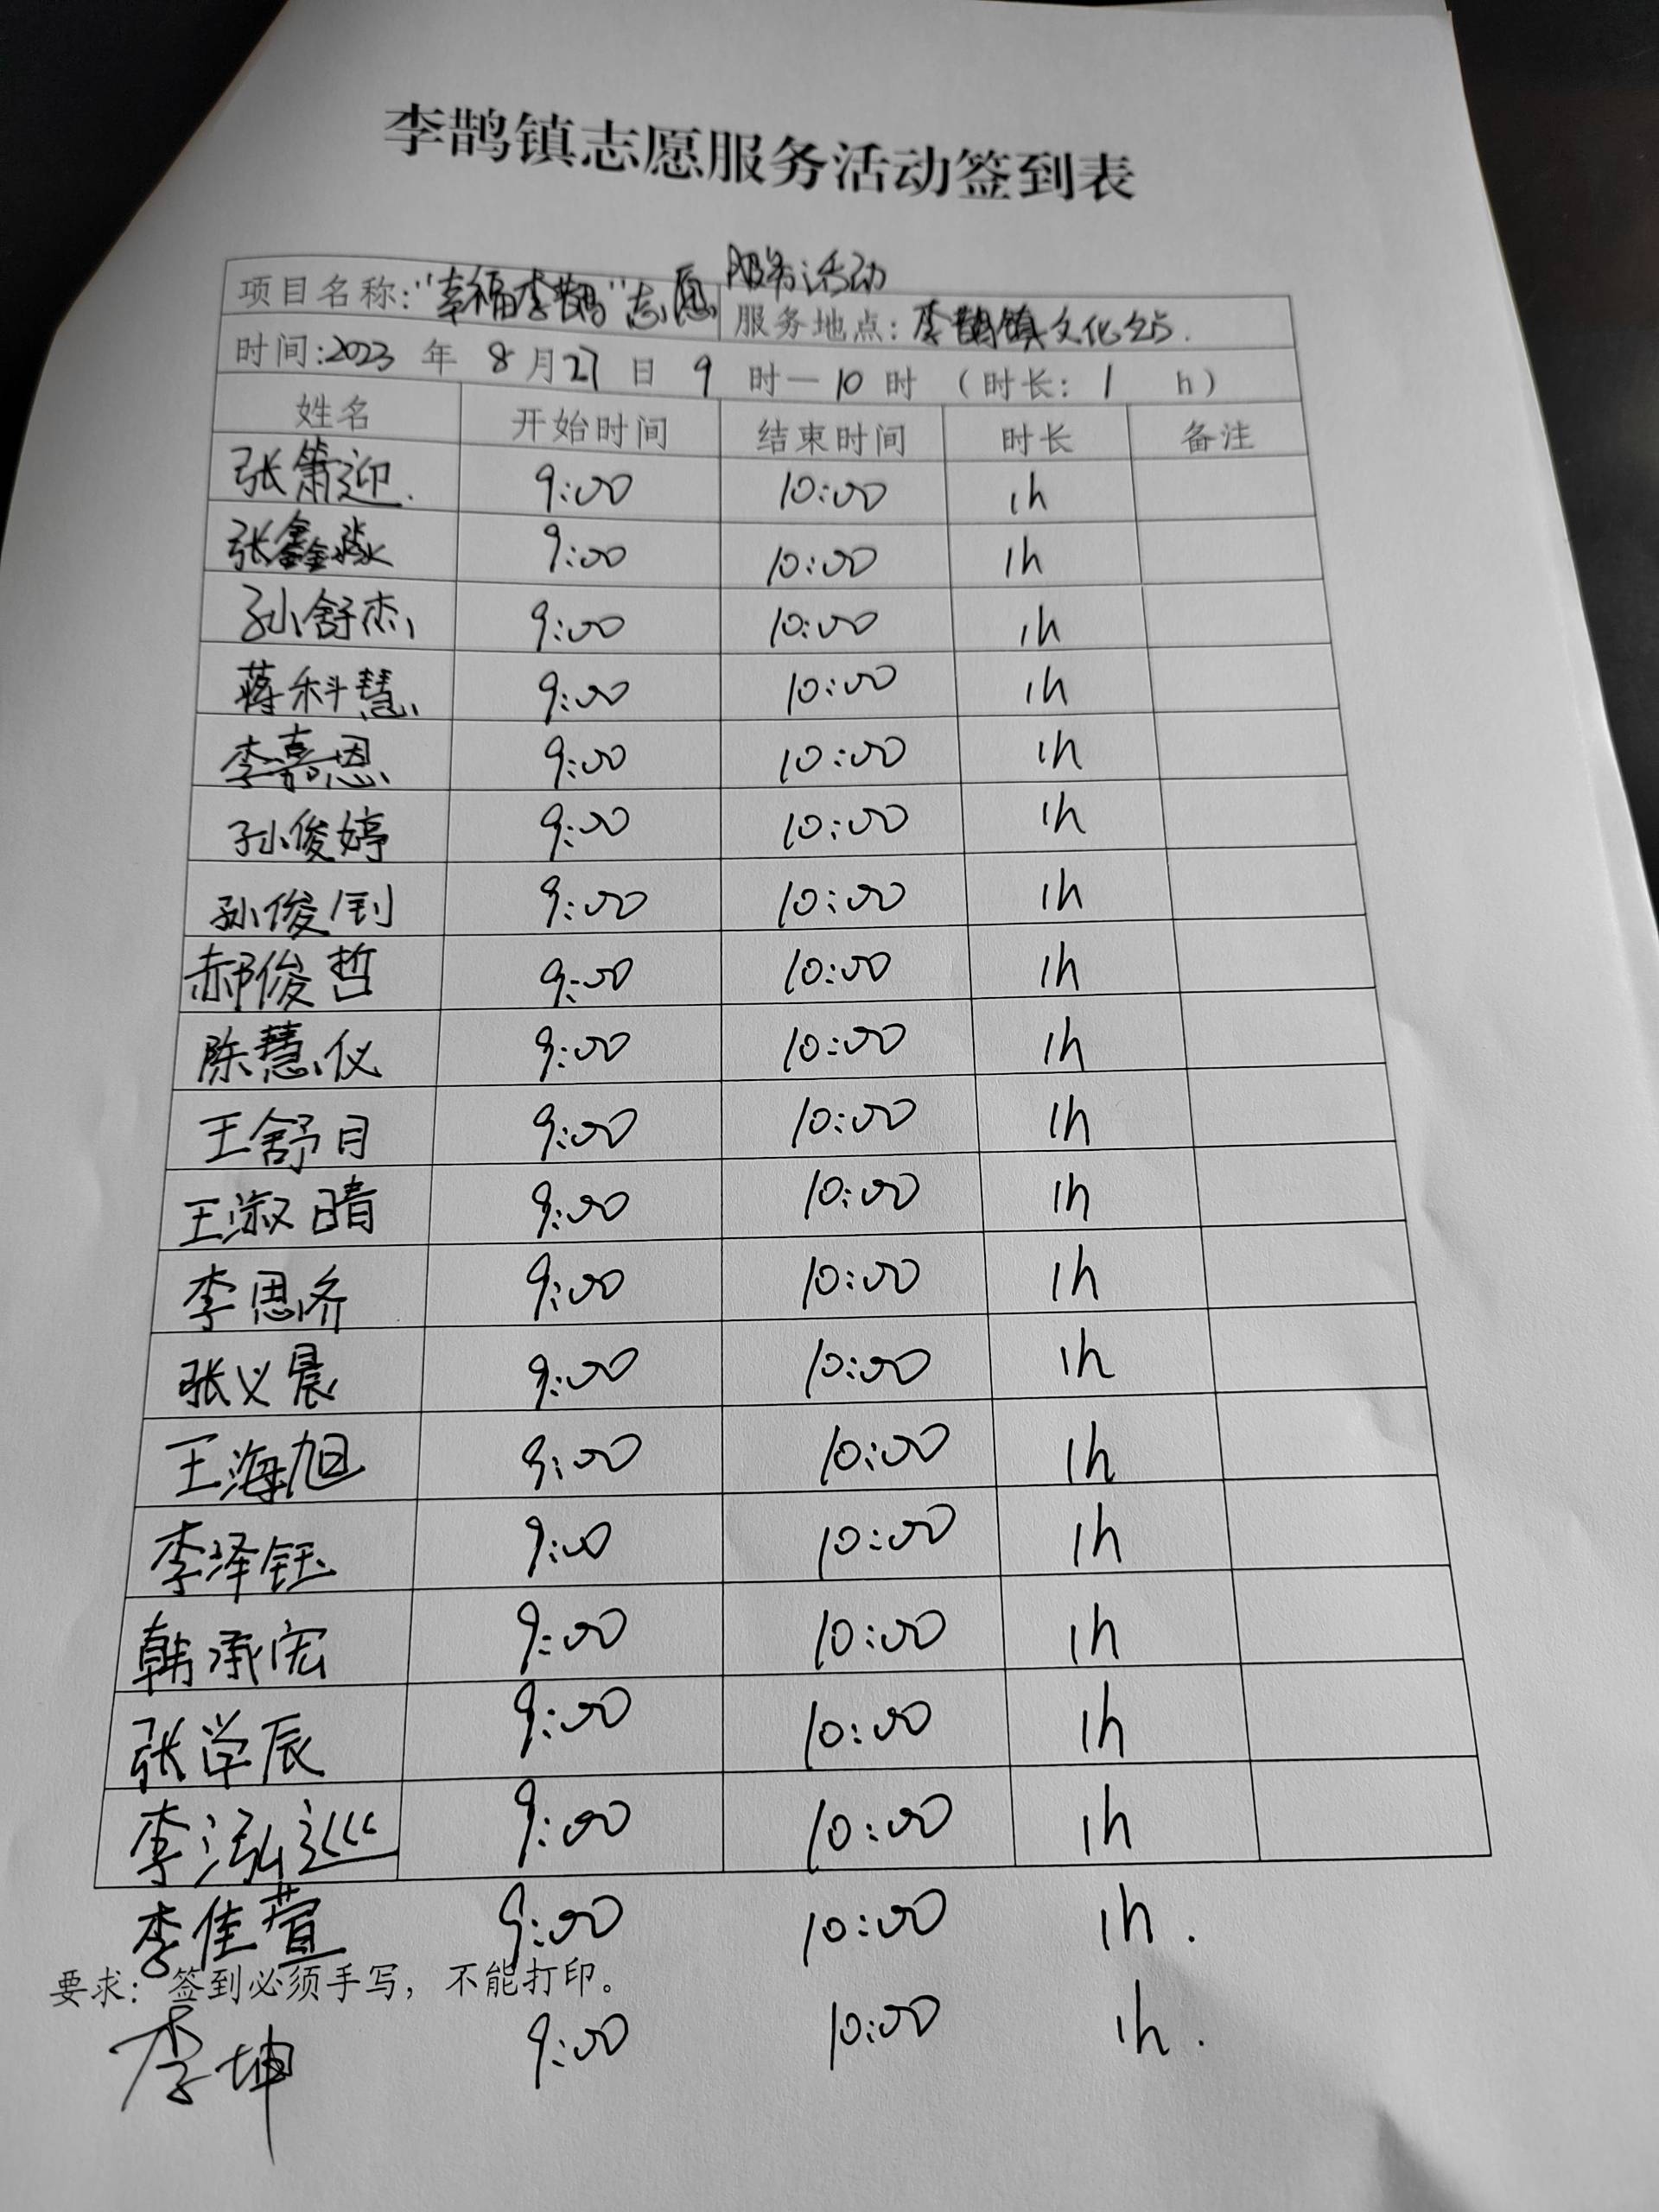 李鹊镇志愿服务活动签到表
项目名称:“幸福李鹊”志愿服务活动 服务地点:李鹊镇文化站.
时间:2023 年 8 月 27 日 9 时—10 时 (时长: 1 h)
姓名 开始时间 结束时间 时长 备注
张箫迎. 9:00 10:00 1h
张鑫淼 9:00 10:00 1h
孙舒杰 9:00 10:00 1h
蒋科慧 9:00 10:00 1h
李嘉恩 9:00 10:00 1h
孙俊婷 9:00 10:00 1h
孙俊 9:00 10:00 1h
郝俊哲 9:00 10:00 1h
陈慧仪 9:00 10:00 1h
王舒月 9:00 10:00 1h
王淑晴 9:00 10:00 1h
李思齐 9:00 10:00 1h
张义晨 9:00 10:00 1h
王海旭 9:00 10:00 1h
李泽钰 9:00 10:00 1h
韩承宏 9:00 10:00 1h
张学辰 9:00 10:00 1h
李泓巡 9:00 10:00 1h
李佳萱 9:00 10:00 1h.
要求:签到必须手写,不能打印。
李坤 9:00 10:00 1h.